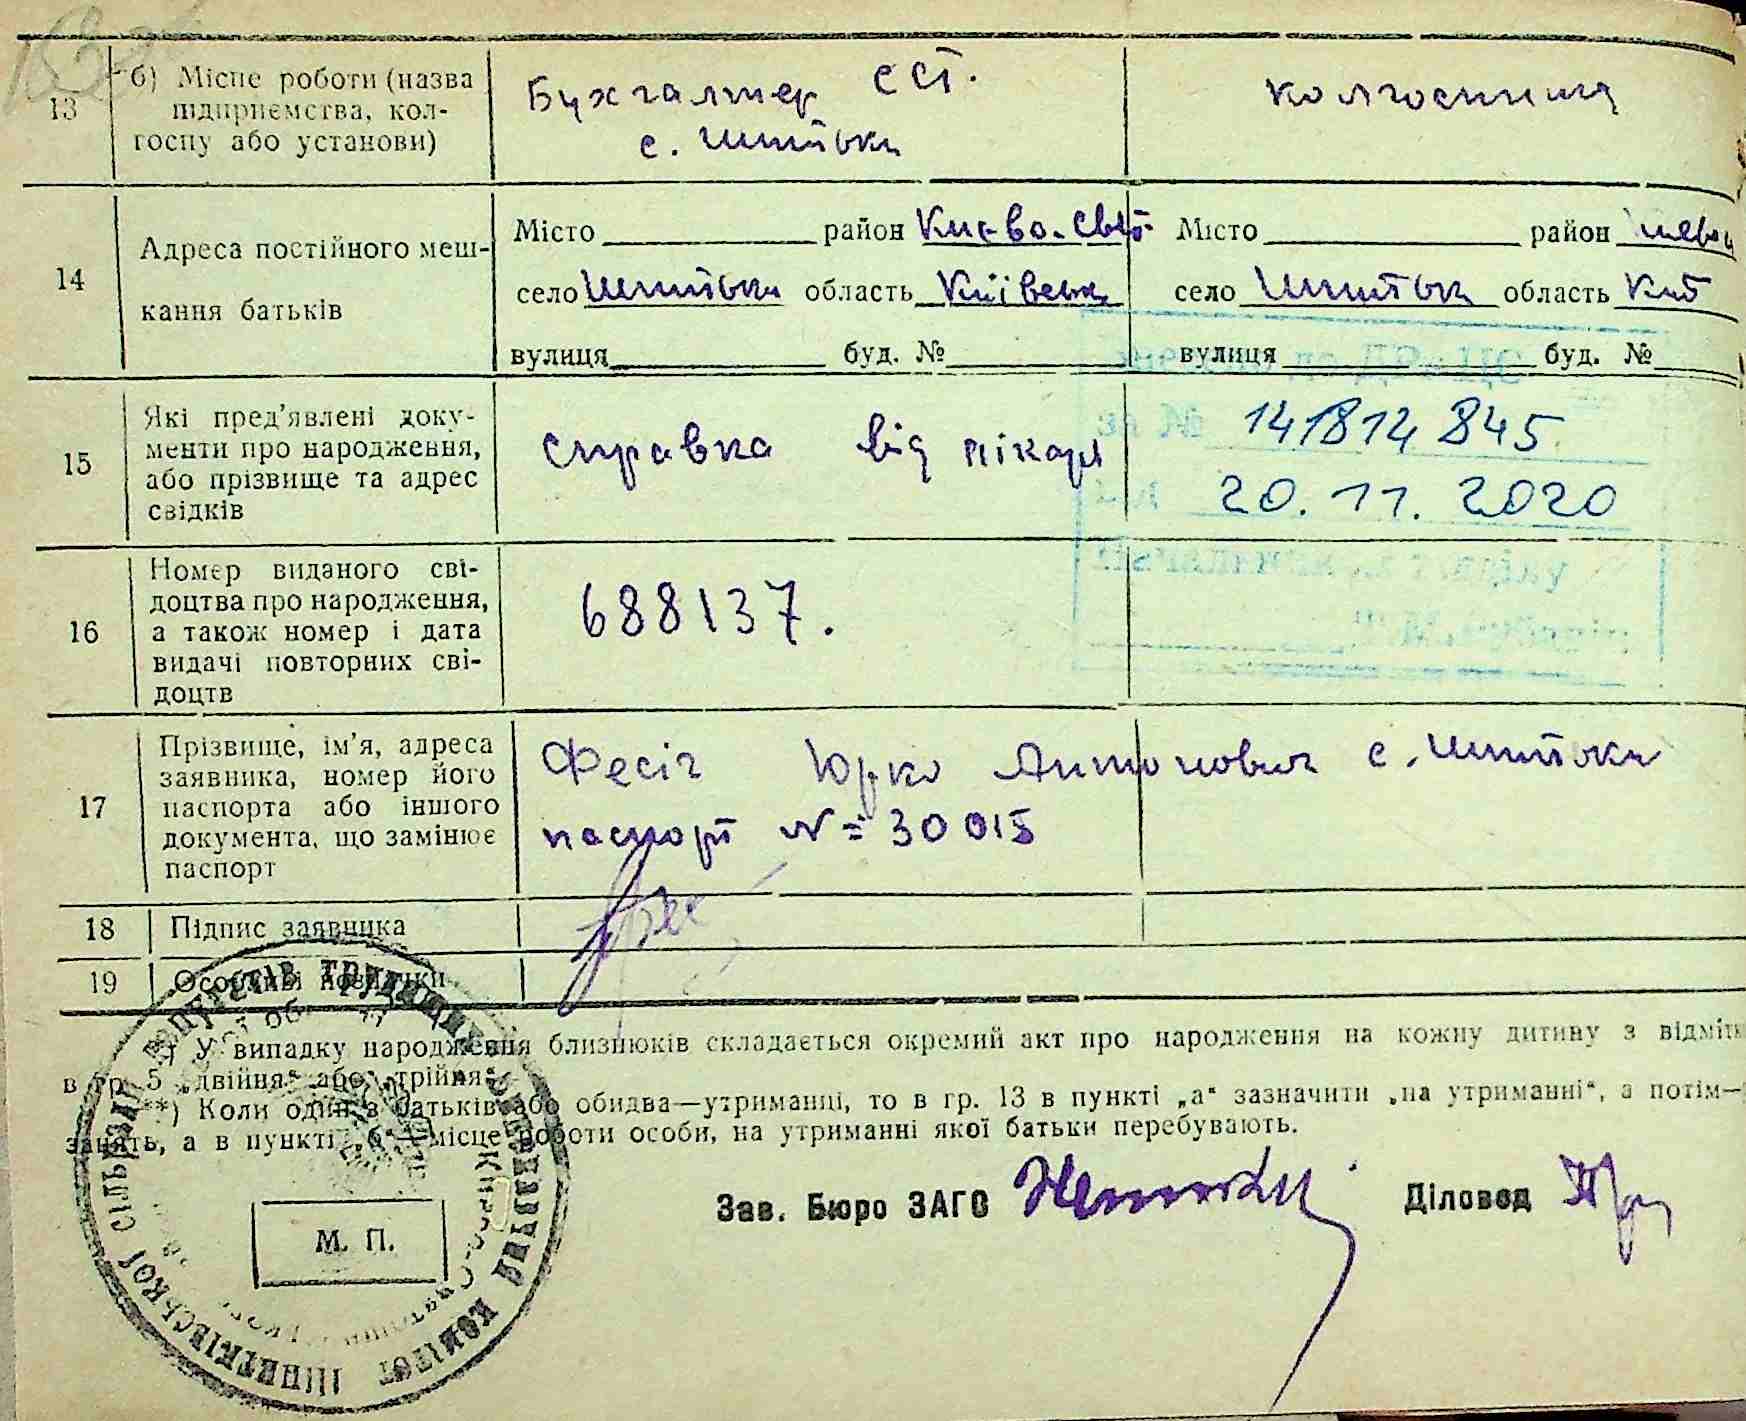 13 б) Місце роботи (назва підприємства, кол-
госпу або установи)
Бухгалтер ССТ.
с. Шпитьки
колгоспниця
14 Адреса постійного меш-
кання батьків
Місто район Києво-Свят
село Шпитьки область Київськ
вулиця буд. №
Місто район
село Шпитьк область Киї
вулиця буд. №
15 Які пред'явлені доку-
менти про народження,
або прізвище та адрес
свідків
справка від лікаря
за № 141814845
20.11.2020
16 Номер виданого сві-
доцтва про народження,
а також номер і дата
видачі повторних сві-
доцтв
688137.
17 Прізвище, ім'я, адреса
заявника, номер його
паспорта або іншого
документа, що замінює
паспорт
Фесіч Юрко Антонович с. Шпитьки
паспорт № 30015
18 Підпис заявника
19 Особливі помітки
*) У випадку народження близнюків складається окремий акт про народження на кожну дитину з відміт
в гр. 5 „двійня“ або „трійня“.
**) Коли один з батьків або обидва—утриманці, то в гр. 13 в пункті „а“ зазначити „на утриманні“, а потім—
занять, а в пункті „б“—місце роботи особи, на утриманні якої батьки перебувають.
Зав. Бюро ЗАГС
Діловод
М. П.
ДЕПУТАТІВ ТРУДЯЩИХ ВИКОНАВЧИЙ КОМІТЕТ ШПИТЬКІВСЬКОЇ СІЛЬСЬКОЇ РАДИ